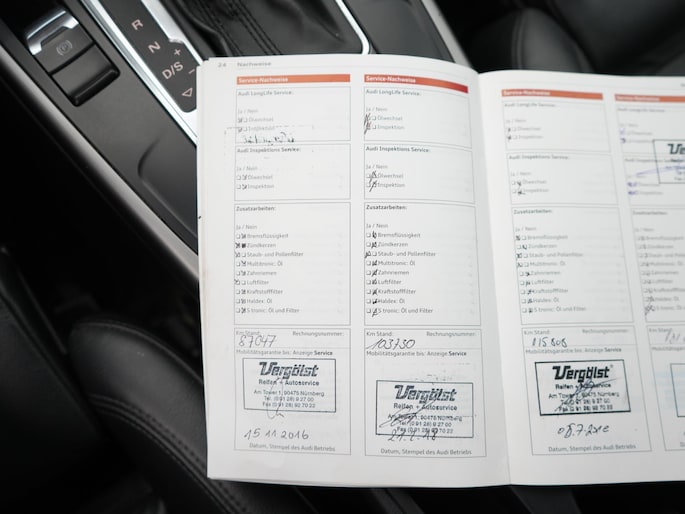 R
N
D/S
+
−
(P)
24 Nachweise
Service-Nachweise
Audi LongLife Service:
Ja / Nein
Ölwechsel
Inspektion
Audi Inspektions Service:
Ja / Nein
Ölwechsel
Inspektion
Zusatzarbeiten:
Ja / Nein
Bremsflüssigkeit
Zündkerzen
Staub- und Pollenfilter
Multitronic: Öl
Zahnriemen
Luftfilter
Kraftstofffilter
Haldex: Öl
S tronic: Öl und Filter
Km Stand: Rechnungsnummer:
87047
Mobilitätsgarantie bis: Anzeige Service
Vergölst
Reifen + Autoservice
Am Tower 1, 90475 Nürnberg
Tel. (0 91 28) 9 27 00
Fax (0 91 28) 92 70 22
15.11.2016
Datum, Stempel des Audi Betriebs
Service-Nachweise
Audi LongLife Service:
Ja / Nein
Ölwechsel
Inspektion
Audi Inspektions Service:
Ja / Nein
Ölwechsel
Inspektion
Zusatzarbeiten:
Ja / Nein
Bremsflüssigkeit
Zündkerzen
Staub- und Pollenfilter
Multitronic: Öl
Zahnriemen
Luftfilter
Kraftstofffilter
Haldex: Öl
S tronic: Öl und Filter
Km Stand: Rechnungsnummer:
103730
Mobilitätsgarantie bis: Anzeige Service
Vergölst
Reifen + Autoservice
Am Tower 1, 90475 Nürnberg
Tel (0 91 28) 9 27 00
Fax (0 91 28) 92 70 22
Datum, Stempel des Audi Betriebs
Service-Nachweise
Audi LongLife Service:
Ja / Nein
Ölwechsel
Inspektion
Audi Inspektions Service:
Ja / Nein
Ölwechsel
Inspektion
Zusatzarbeiten:
Ja / Nein
Bremsflüssigkeit
Zündkerzen
Staub- und Pollenfilter
Multitronic: Öl
Zahnriemen
Luftfilter
Kraftstofffilter
Haldex: Öl
S tronic: Öl und Filter
Km Stand: Rechnungsnummer:
115808
Mobilitätsgarantie bis: Anzeige Service
Vergölst
Reifen + Autoservice
Am Tower 1, 90475 Nürnberg
Datum, Stempel des Audi Betriebs
Service-Nachweise
Audi LongLife Service:
Ja / Nein
Ölwechsel
Inspektion
Ja / Nein
Ölwechsel
Inspektion
Zusatzarbeiten:
Ja / Nein
Bremsflüssigkeit
Zündkerzen
Staub- und Pollenfilter
Multitronic: Öl
Zahnriemen
Luftfilter
Kraftstofffilter
Haldex: Öl
S tronic: Öl und Filter
Km Stand: